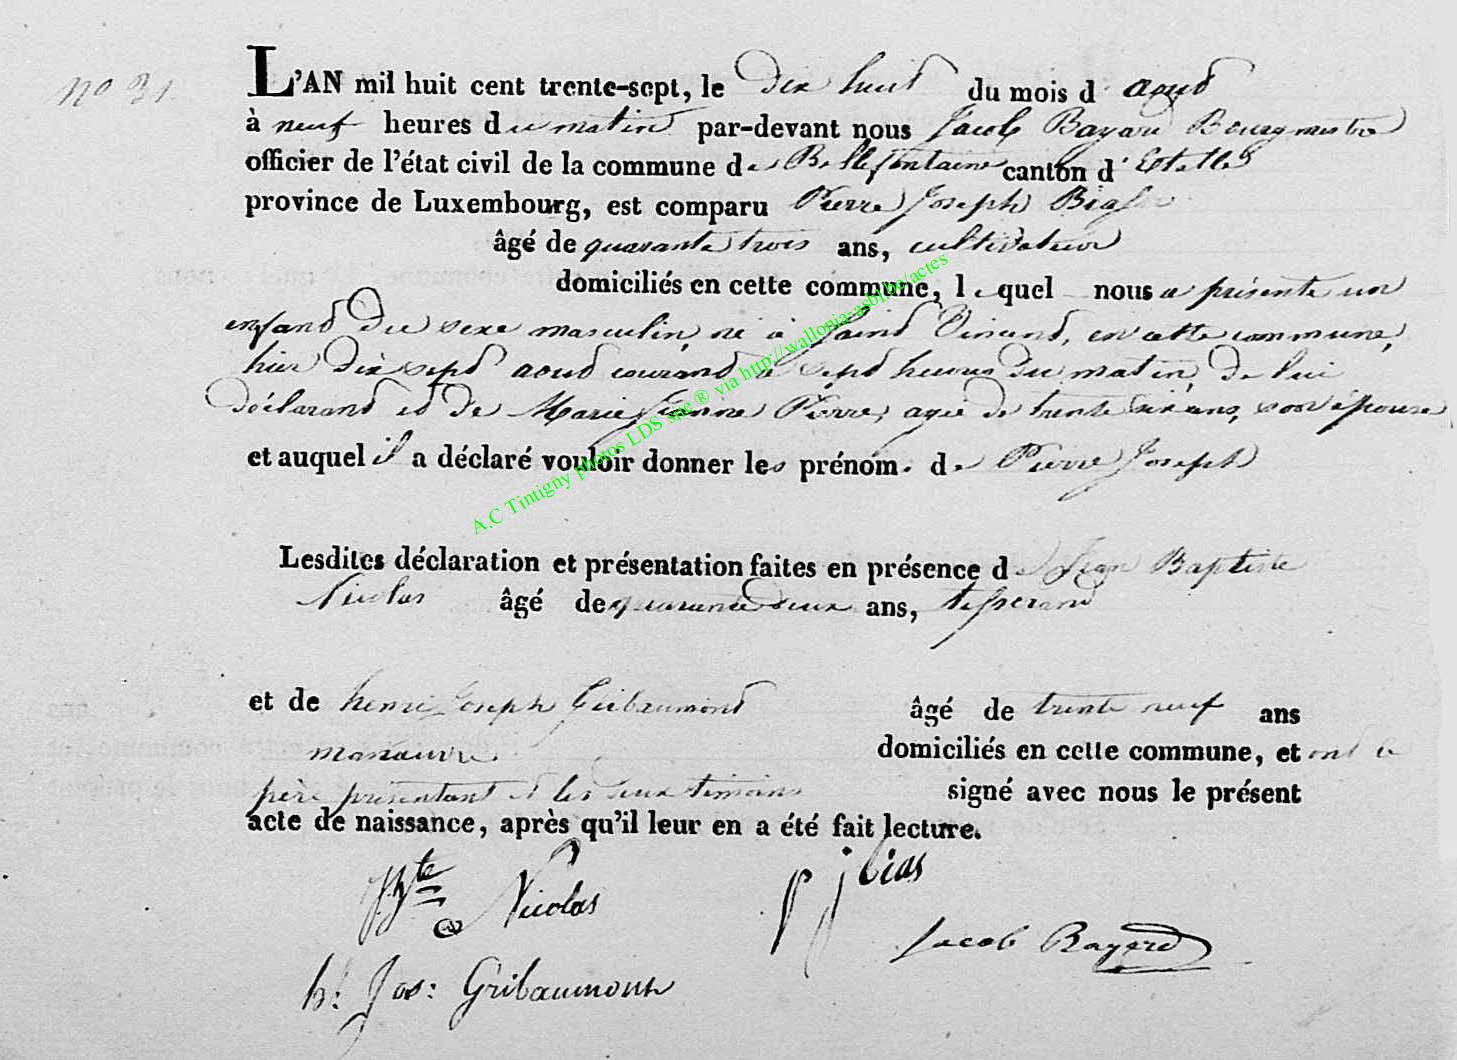 no 31.
L'AN mil huit cent trente-sept, le dix huit du mois d' aout
à neuf heures du matin par-devant nous Jacob Bayard Bourgmestre
officier de l'état civil de la commune de Bellefontaine canton d' Etalle
province de Luxembourg, est comparu Pierre Joseph Bias
âgé de quarante trois ans, cultivateur
domiciliés en cette commune, lequel nous a présenté un
enfant du sexe masculin, né à Saint Vincent, en cette commune,
hier dix sept aout courant à sept heures du matin, de lui
déclarant et de Marie Jeanne Pierre, agée de trente six ans, son épouse
et auquel il a déclaré vouloir donner les prénom. de Pierre Joseph
Lesdites déclaration et présentation faites en présence de Jean Baptiste
Nicolas âgé de quarante deux ans, tisserand
et de henri Joseph Gribaumont âgé de trente neuf ans
manœuvre domiciliés en cette commune, et ont le
père présentant et les deux témoins signé avec nous le présent
acte de naissance, après qu'il leur en a été fait lecture.
JBte Nicolas
p j bias
Jacob Bayard
h: Jos: Gribaumont
A.C Tintigny photos LDS site ® via http://wallonia-asbl.be/actes